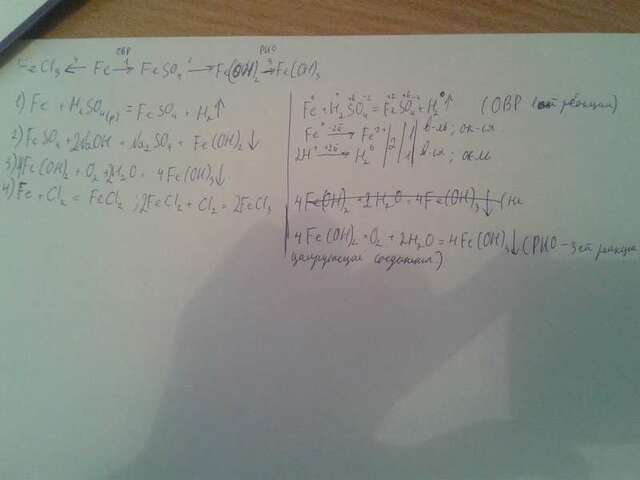 ОВР РИО
FeCl₃ ← Fe →¹ FeSO₄ →² Fe(OH)₂ →³ Fe(OH)₃
1) Fe + H₂SO₄(р) = FeSO₄ + H₂↑
2) FeSO₄ + 2NaOH = Na₂SO₄ = Fe(OH)₂↓
3) 4Fe(OH)₂ + O₂ + 2H₂O = 4Fe(OH)₃↓
4) Fe + Cl₂ = FeCl₂ ; 2FeCl₂ + Cl₂ = 2FeCl₃
Fe⁰ + H₂⁺SO₄ = FeSO₄ + H₂⁰↑ (ОВР реакции)
Fe⁰ −2ē → Fe²⁺ | 2 | 1 | в-ль; ок-ся
2H⁺ +2ē → H₂⁰ | 1 | в-ся; ок-ль
4Fe(OH)₂ + 2H₂O = 4Fe(OH)₃↓ (
4Fe(OH)₂ + O₂ + 2H₂O = 4Fe(OH)₃↓ (РИО – 3 реакция
соединения)